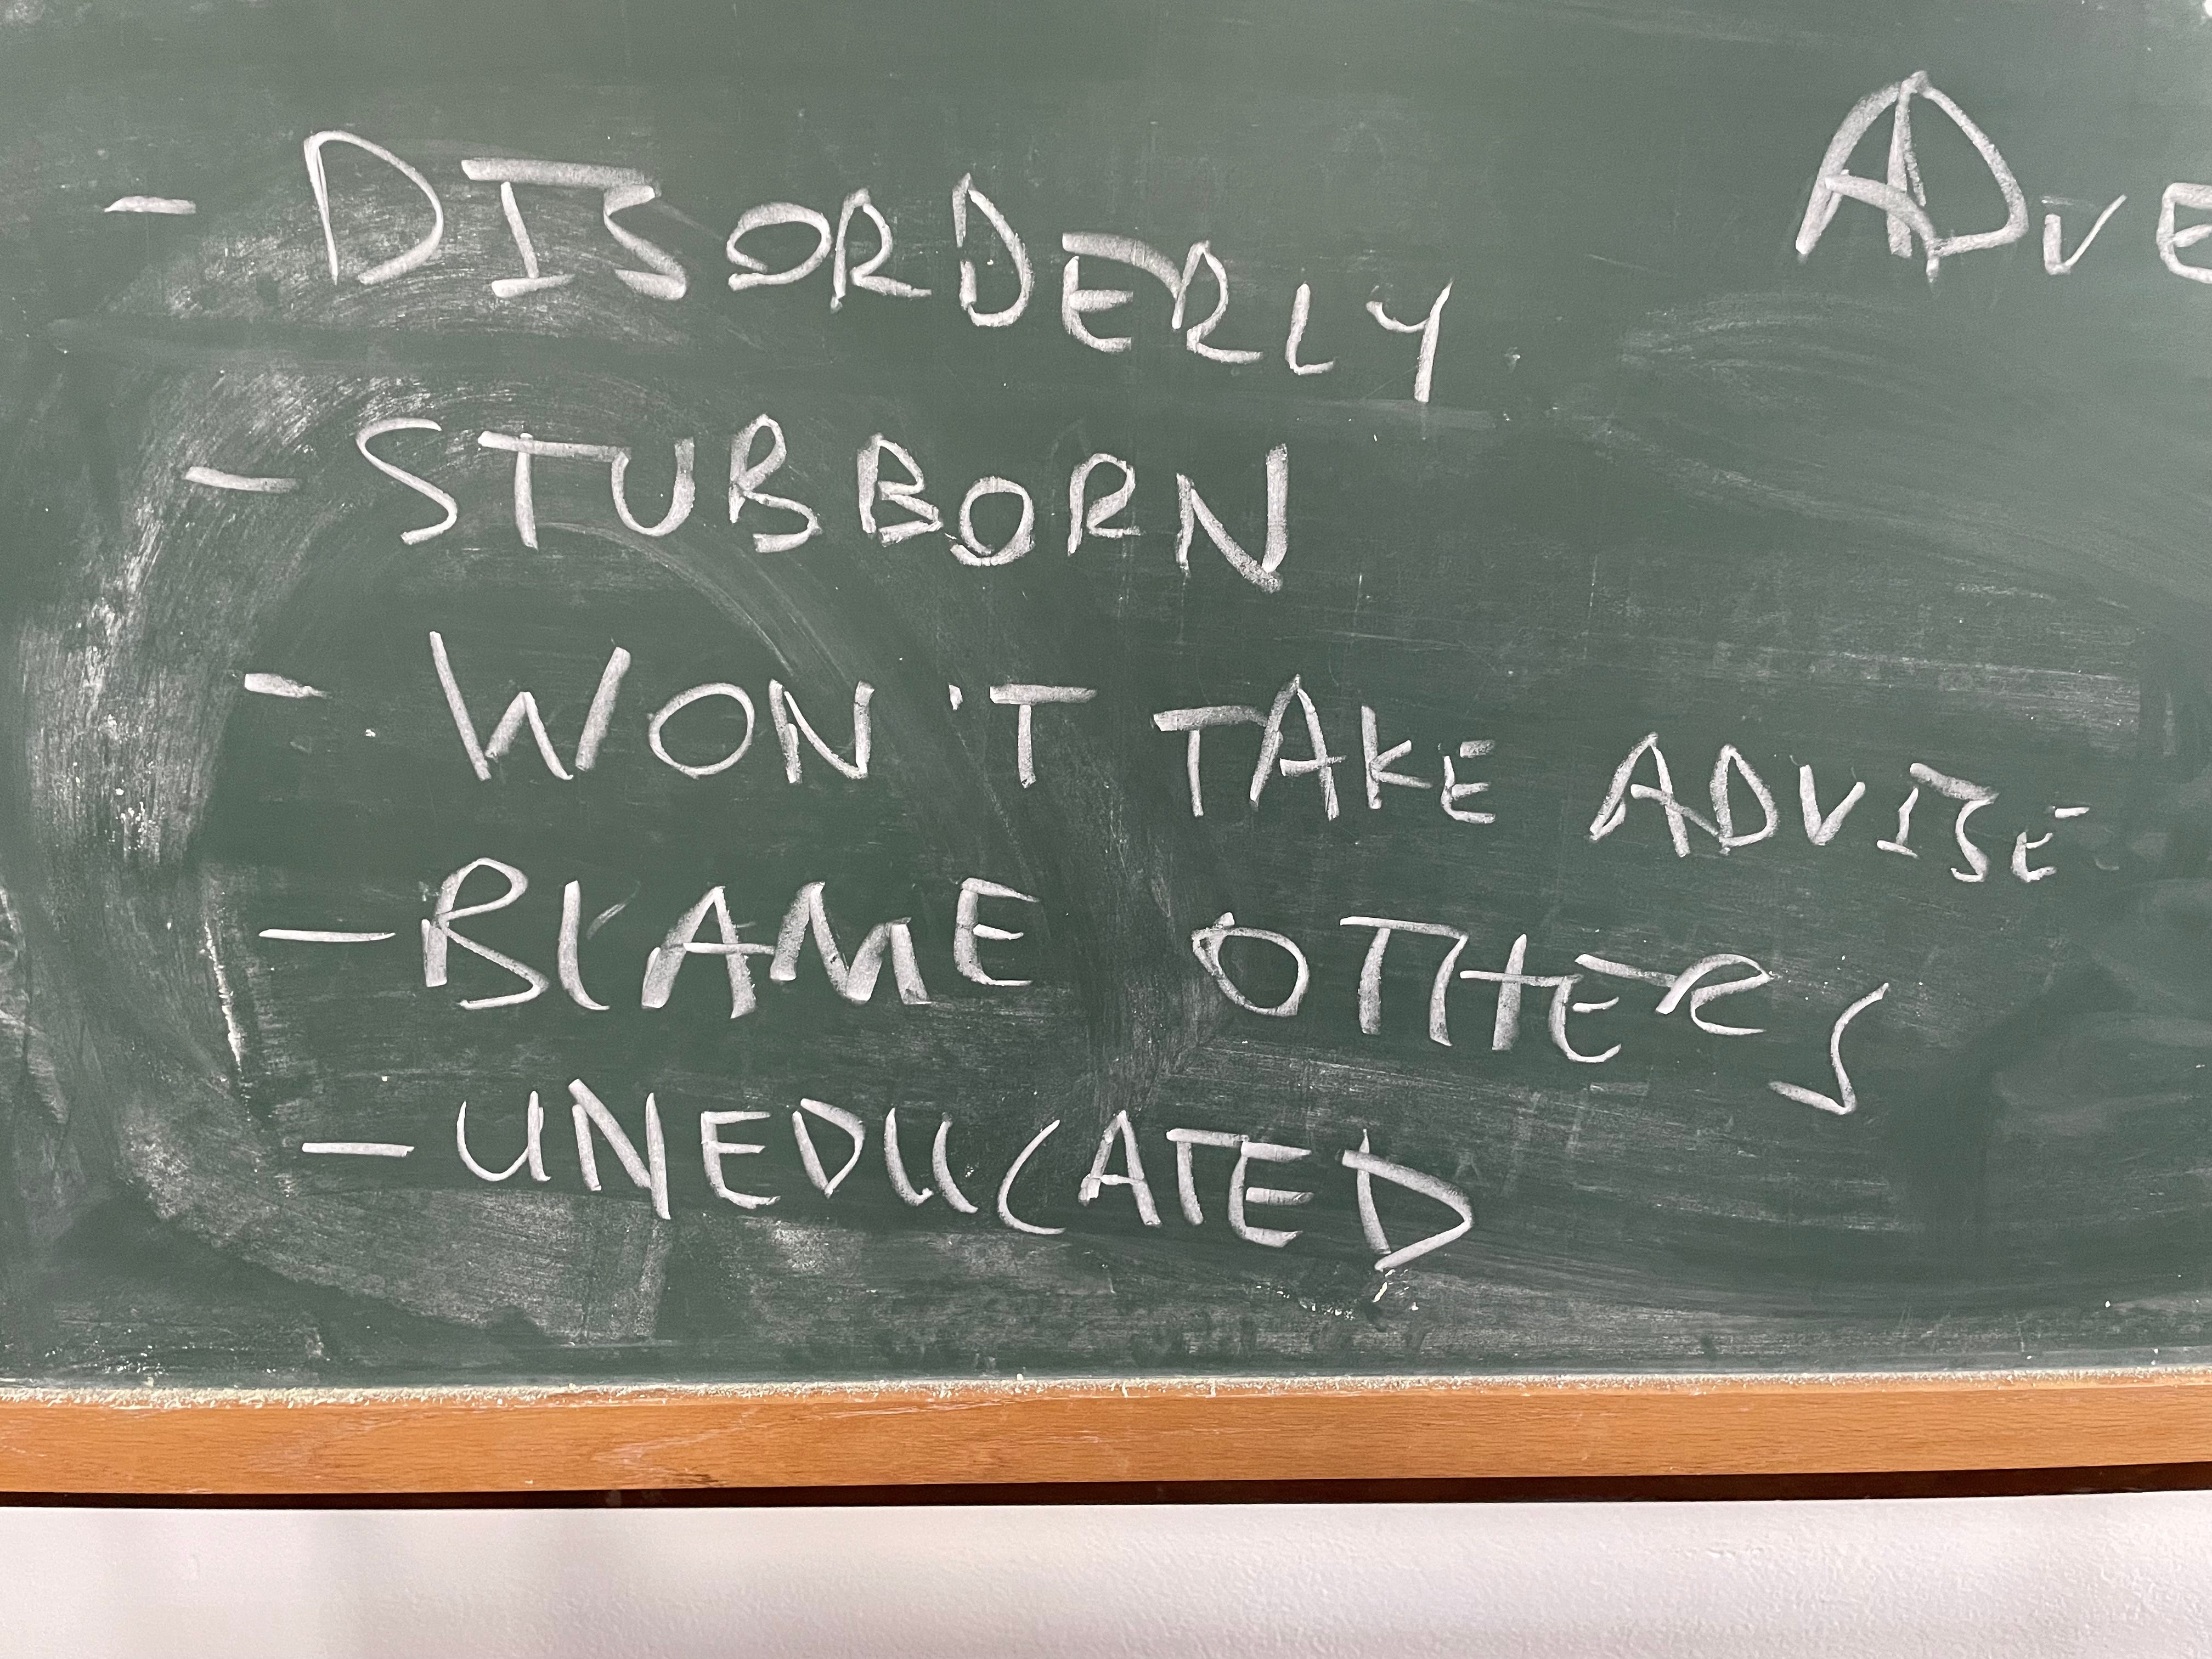 - DISORDERLY
- STUBBORN
- WON'T TAKE ADVISE
- BLAME OTHERS
- UNEDUCATED